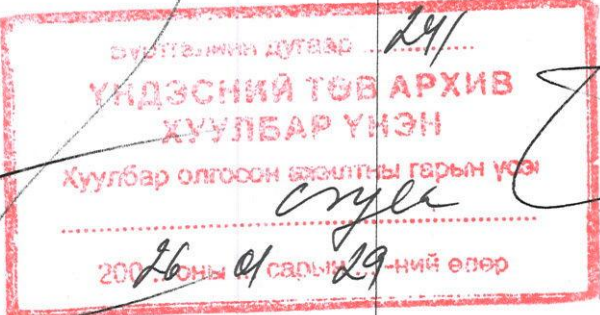 Бүртгэлийн дугаар ..........241
ҮНДЭСНИЙ ТӨВ АРХИВ
ХУУЛБАР ҮНЭН
Хуулбар олгосон ажилтны гарын үсэг
200 26 оны 01 сарын 29-ний өдөр